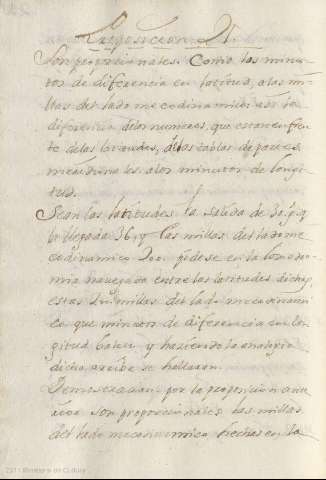 Proposicion
Son proporcionales. Como los minu-
tos de diferencia en latitud, a las mi-
llas del lado mecodinamico assi la
diferencia de los numeros, que estan en fren-
te de las latitudes, de las tablas de partes
meridionales a los minutos de longi-
tud.
Sean las latitudes la salida de 30. g. y
la llegada 36. g. las millas del lado me-
codinamico 200. pidese en la loxodro-
mia navegada entre las latitudes dichas,
estas 200 millas del lado mecodinami-
co que minutos de diferencia en lon-
gitud y haziendo la analogia
dicha arriba se hallaran.
Demostracion por la proporcion
son proporcionales las millas
del lado mecodinamico hechas en la
Ministerio de Cultura